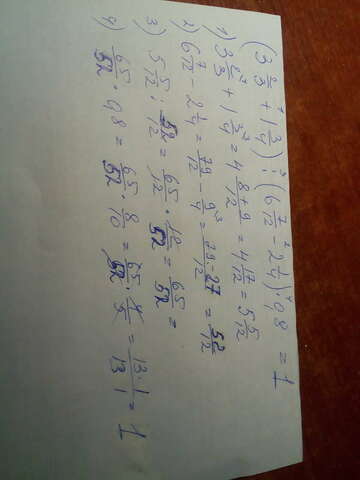 (3 2/3 + 1 3/4) : (6 7/12 - 2 1/4) · 0,8 = 1
1) 3 2/3 + 1 3/4 = 4 8+9/12 = 4 17/12 = 5 5/12
2) 6 7/12 - 2 1/4 = 79/12 - 9/4 = 79-27/12 = 52/12
3) 5 5/12 : 52/12 = 65/12 · 12/52 = 65/52 =
4) 65/52 · 0,8 = 65/52 · 8/10 = 65/52 · 4/5 = 13·1/13·1 = 1